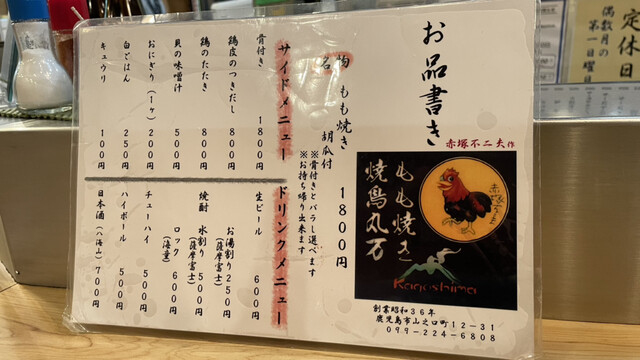 お品書き
赤塚不二夫作
もも焼き
焼鳥丸万
Kagoshima
創業昭和36年
鹿児島市山之口町12-31
099-224-6808
名物
もも焼き 1800円
胡瓜付
※骨付きとバラし選べます
※お持ち帰り出来ます
サイドメニュー
骨付き 1800円
鶏皮のつきだし 800円
鶏のたたき 800円
貝の味噌汁 500円
おにぎり(1ヶ) 200円
白ごはん 250円
キュウリ 100円
ドリンクメニュー
生ビール 600円
焼酎
お湯割り 250円
(薩摩富士)
水割り 500円
(薩摩富士)
ロック 600円
(海童)
チューハイ 500円
ハイボール 500円
日本酒(八海山) 700円
定休日
偶数月の
第一日曜